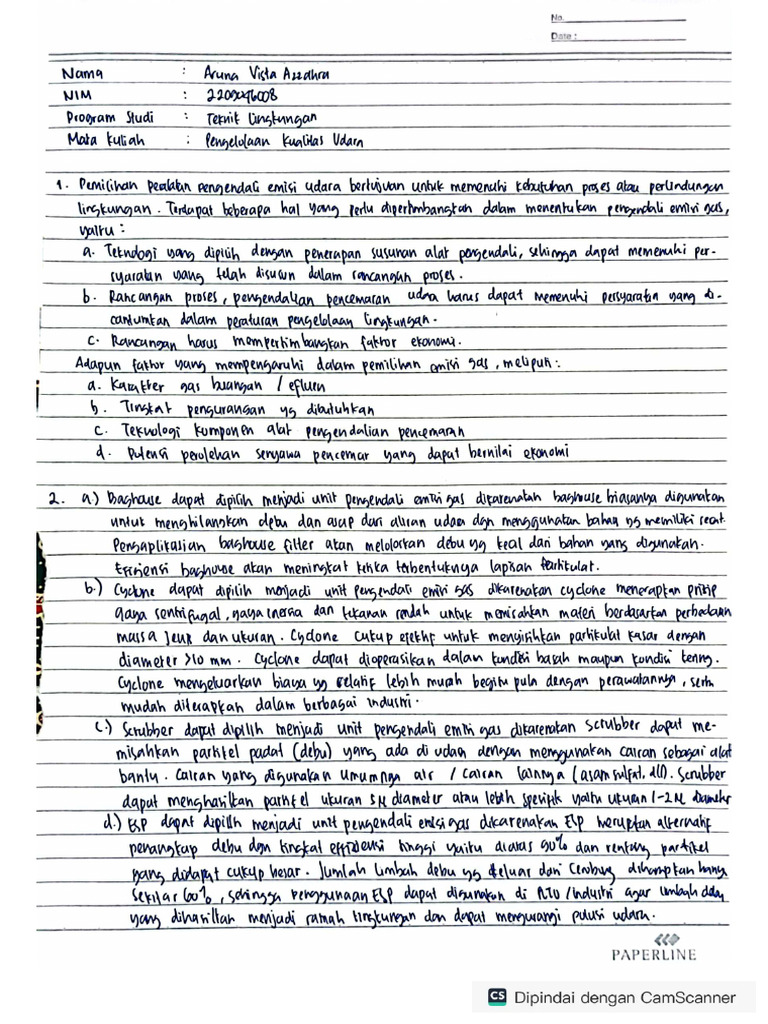 No.
Date :
Nama : Aruna Vista Azzahra
NIM : 2209046008
Program Studi : Teknik Lingkungan
Mata Kuliah : Pengelolaan Kualitas Udara
1. Pemilihan pealatan pengendali emisi udara bertujuan untuk memenuhi kebutuhan proses atau perlindungan
lingkungan. Terdapat beberapa hal yang perlu dipertimbangkan dalam menentukan pengendali emisi gas,
yaitu :
a. Teknologi yang dipilih dengan penerapan susunan alat pengendali, sehingga dapat memenuhi per-
syaratan yang telah disusun dalam rancangan proses.
b. Rancangan proses, pengendalian pencemaran udara harus dapat memenuhi persyaratan yang di-
cantumkan dalam peraturan pengelolaan lingkungan.
c. Rancangan harus mempertimbangkan faktor ekonomi.
Adapun faktor yang mempengaruhi dalam pemilihan emisi gas, meliputi :
a. Karakter gas buangan / efluen
b. Tingkat pengurangan yg dibutuhkan
c. Teknologi komponen alat pengendalian pencemaran
d. Potensi perolehan senyawa pencemar yang dapat bernilai ekonomi
2. a.) Baghouse dapat dipilih menjadi unit pengendali emisi gas dikarenakan baghouse biasanya digunakan
untuk menghilangkan debu dan asap dari aliran udara dgn menggunakan bahan yg memiliki serat.
Pengaplikasian baghouse filter akan meloloskan debu yg kecil dari bahan yang digunakan.
Efisiensi baghouse akan meningkat ketika terbentuknya lapisan partikulat.
b.) Cyclone dapat dipilih menjadi unit pengendali emisi gas dikarenakan cyclone menerapkan prinsip
gaya sentrifugal, gaya inersia dan tekanan rendah untuk memisahkan materi berdasarkan perbedaan
massa jenis dan ukuran. Cyclone cukup efektif untuk menyisihkan partikulat kasar dengan
diameter >10 mm. Cyclone dapat dioperasikan dalam kondisi basah maupun kondisi kering.
Cyclone mengeluarkan biaya yg relatif lebih murah begitu pula dengan perawatannya, serta
mudah diterapkan dalam berbagai industri.
c.) Scrubber dapat dipilih menjadi unit pengendali emisi gas dikarenakan scrubber dapat me-
misahkan partikel padat (debu) yang ada di udara dengan menggunakan cairan sebagai alat
bantu. Cairan yang digunakan umumnya air / cairan lainnya (asam sulfat, dll). Scrubber
dapat menghasilkan partikel ukuran 5µ diameter atau lebih spesifik yaitu ukuran 1-2µ diameter
d.) ESP dapat dipilih menjadi unit pengendali emisi gas dikarenakan ESP merupakan alternatif
penangkap debu dgn tingkat effisiensi tinggi yaitu diatas 90% dan rentang partikel
yang didapat cukup besar. Jumlah limbah debu yg keluar dari cerobong diharapkan hanya
sekitar 60%, sehingga penggunaan ESP dapat digunakan di industri agar limbah debu
yang dihasilkan menjadi ramah lingkungan dan dapat mengurangi polusi udara.
PAPERLINE
CS Dipindai dengan CamScanner